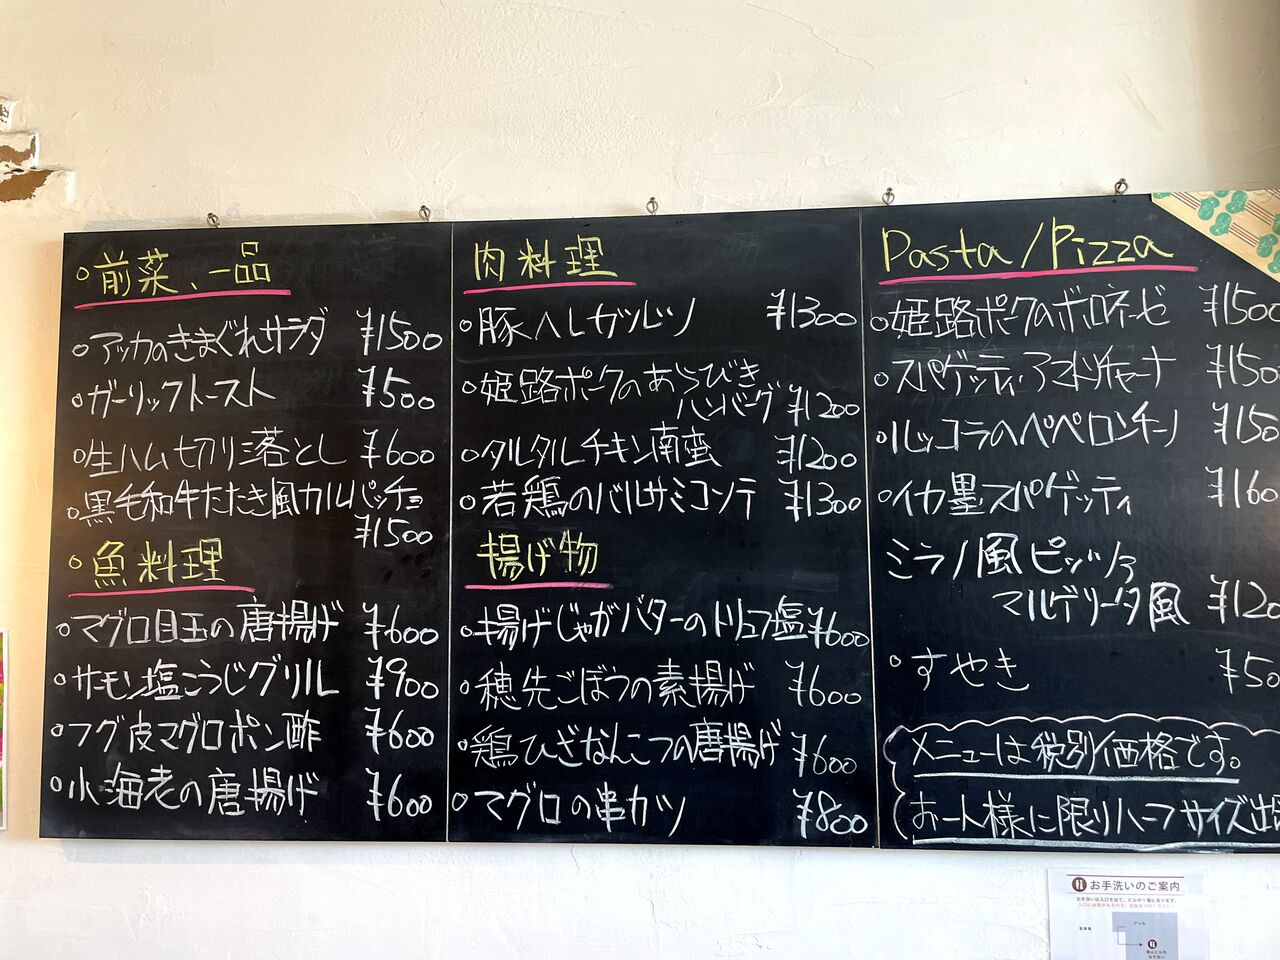 前菜、一品
アッカのきまぐれサラダ ¥1500
ガーリックトースト ¥500
生ハム切り落とし ¥600
黒毛和牛たたき風カルパッチョ
¥1500
魚料理
マグロ目玉の唐揚げ ¥600
サーモン塩こうじグリル ¥900
フグ皮マグロポン酢 ¥600
小海老の唐揚げ ¥600
肉料理
豚ヘレカツレツ ¥1300
姫路ポークのあらびき
ハンバーグ ¥1200
タルタルチキン南蛮 ¥1200
若鶏のバルサミコソテ ¥1300
揚げ物
揚げじゃがバターのトリュフ塩 ¥600
穂先ごぼうの素揚げ ¥600
鶏ひざなんこつの唐揚げ ¥600
マグロの串カツ ¥800
Pasta/Pizza
姫路ポークのボロネーゼ ¥1500
スパゲッティ アマトリチャーナ ¥150
ルッコラのペペロンチーノ ¥150
イカ墨スパゲッティ ¥160
ミラノ風ピッツァ
マルゲリータ風 ¥120
すやき ¥50
メニューは税別価格です。
お一人様に限りハーフサイズ出
お手洗いのご案内